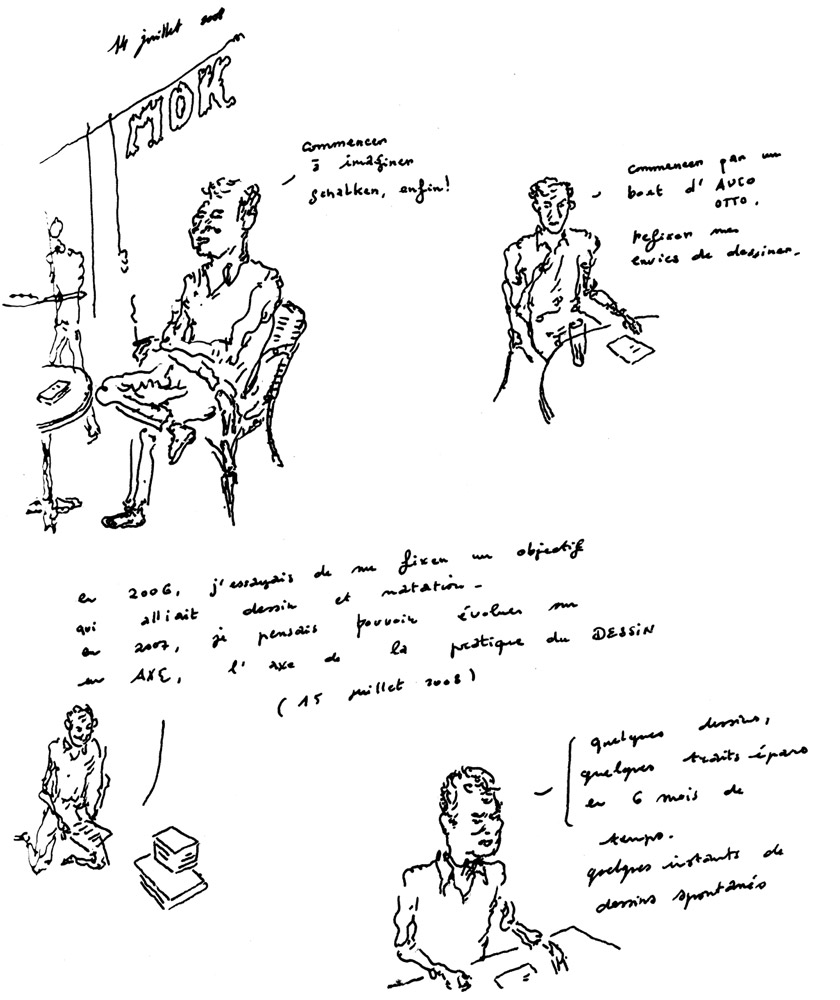 14 juillet 2008
MOK
commencer
à imaginer
schalken, enfin!
commencer par un
bout d'
OTTO.
refixer mes
envies de dessiner.
en 2006, j'essayais de me fixer un objectif
qui alliait dessin et natation.
en 2007, je pensais pouvoir évoluer sur
un AXE, l'axe de la pratique du DESSIN
(15 juillet 2008)
quelques dessins,
quelques traits épars
en 6 mois de
temps.
quelques instants de
dessins spontanés